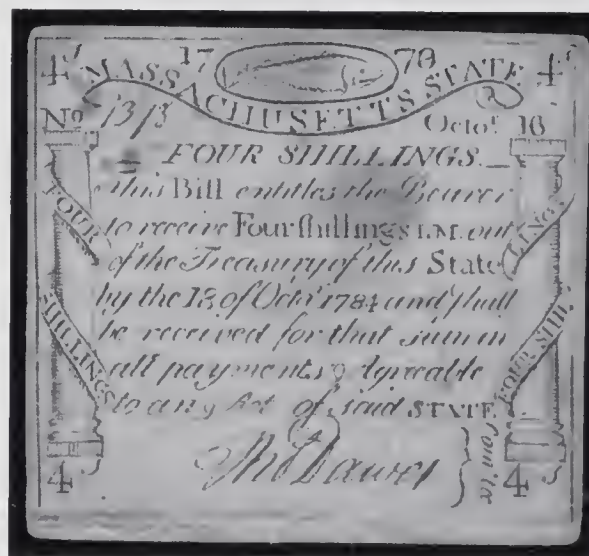 17 78
4s MASSACHUSETTS STATE 4s
No 1313
Octor. 16
FOUR SHILLINGS
This Bill entitles the Bearer
to receive Four shillings L.M. out
of the Treasury of this State
by the 18 of Octr 1784 and shall
be received for that sum in
all payments Agreeable
to any Act of said STATE
FOUR SHILLINGS
FOUR SHILLINGS
Thos Dawes
Com'tee
4 4